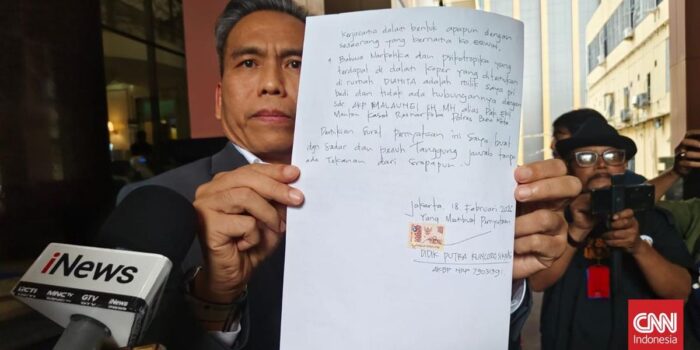 Kerjasama dalam bentuk apapun dengan
seseorang yang bernama Ko ERWIN.
Bahwa Narkotika dan psikotropika yang
terdapat di dalam koper yang ditemukan
di rumah DIANITA adalah milik saya pri
badi dan tidak ada hubungannya dengan
sdr. AKP MALAUNGI, SH, MH alias Pak
Mantan Kasat Resnarkoba Polres Bima Kota
Demikian surat pernyataan ini saya buat
dgn sadar dan penuh Tanggung jawab tanpa
ada Tekanan dari Siapapun.
Jakarta 18 Februari
Yang Membuat Pernyataan
DIDIK PUTRA KUNCORO
AKBP NRP
iNews
RCTI
MNCTV
GTV
iNews
CNN
Indonesia